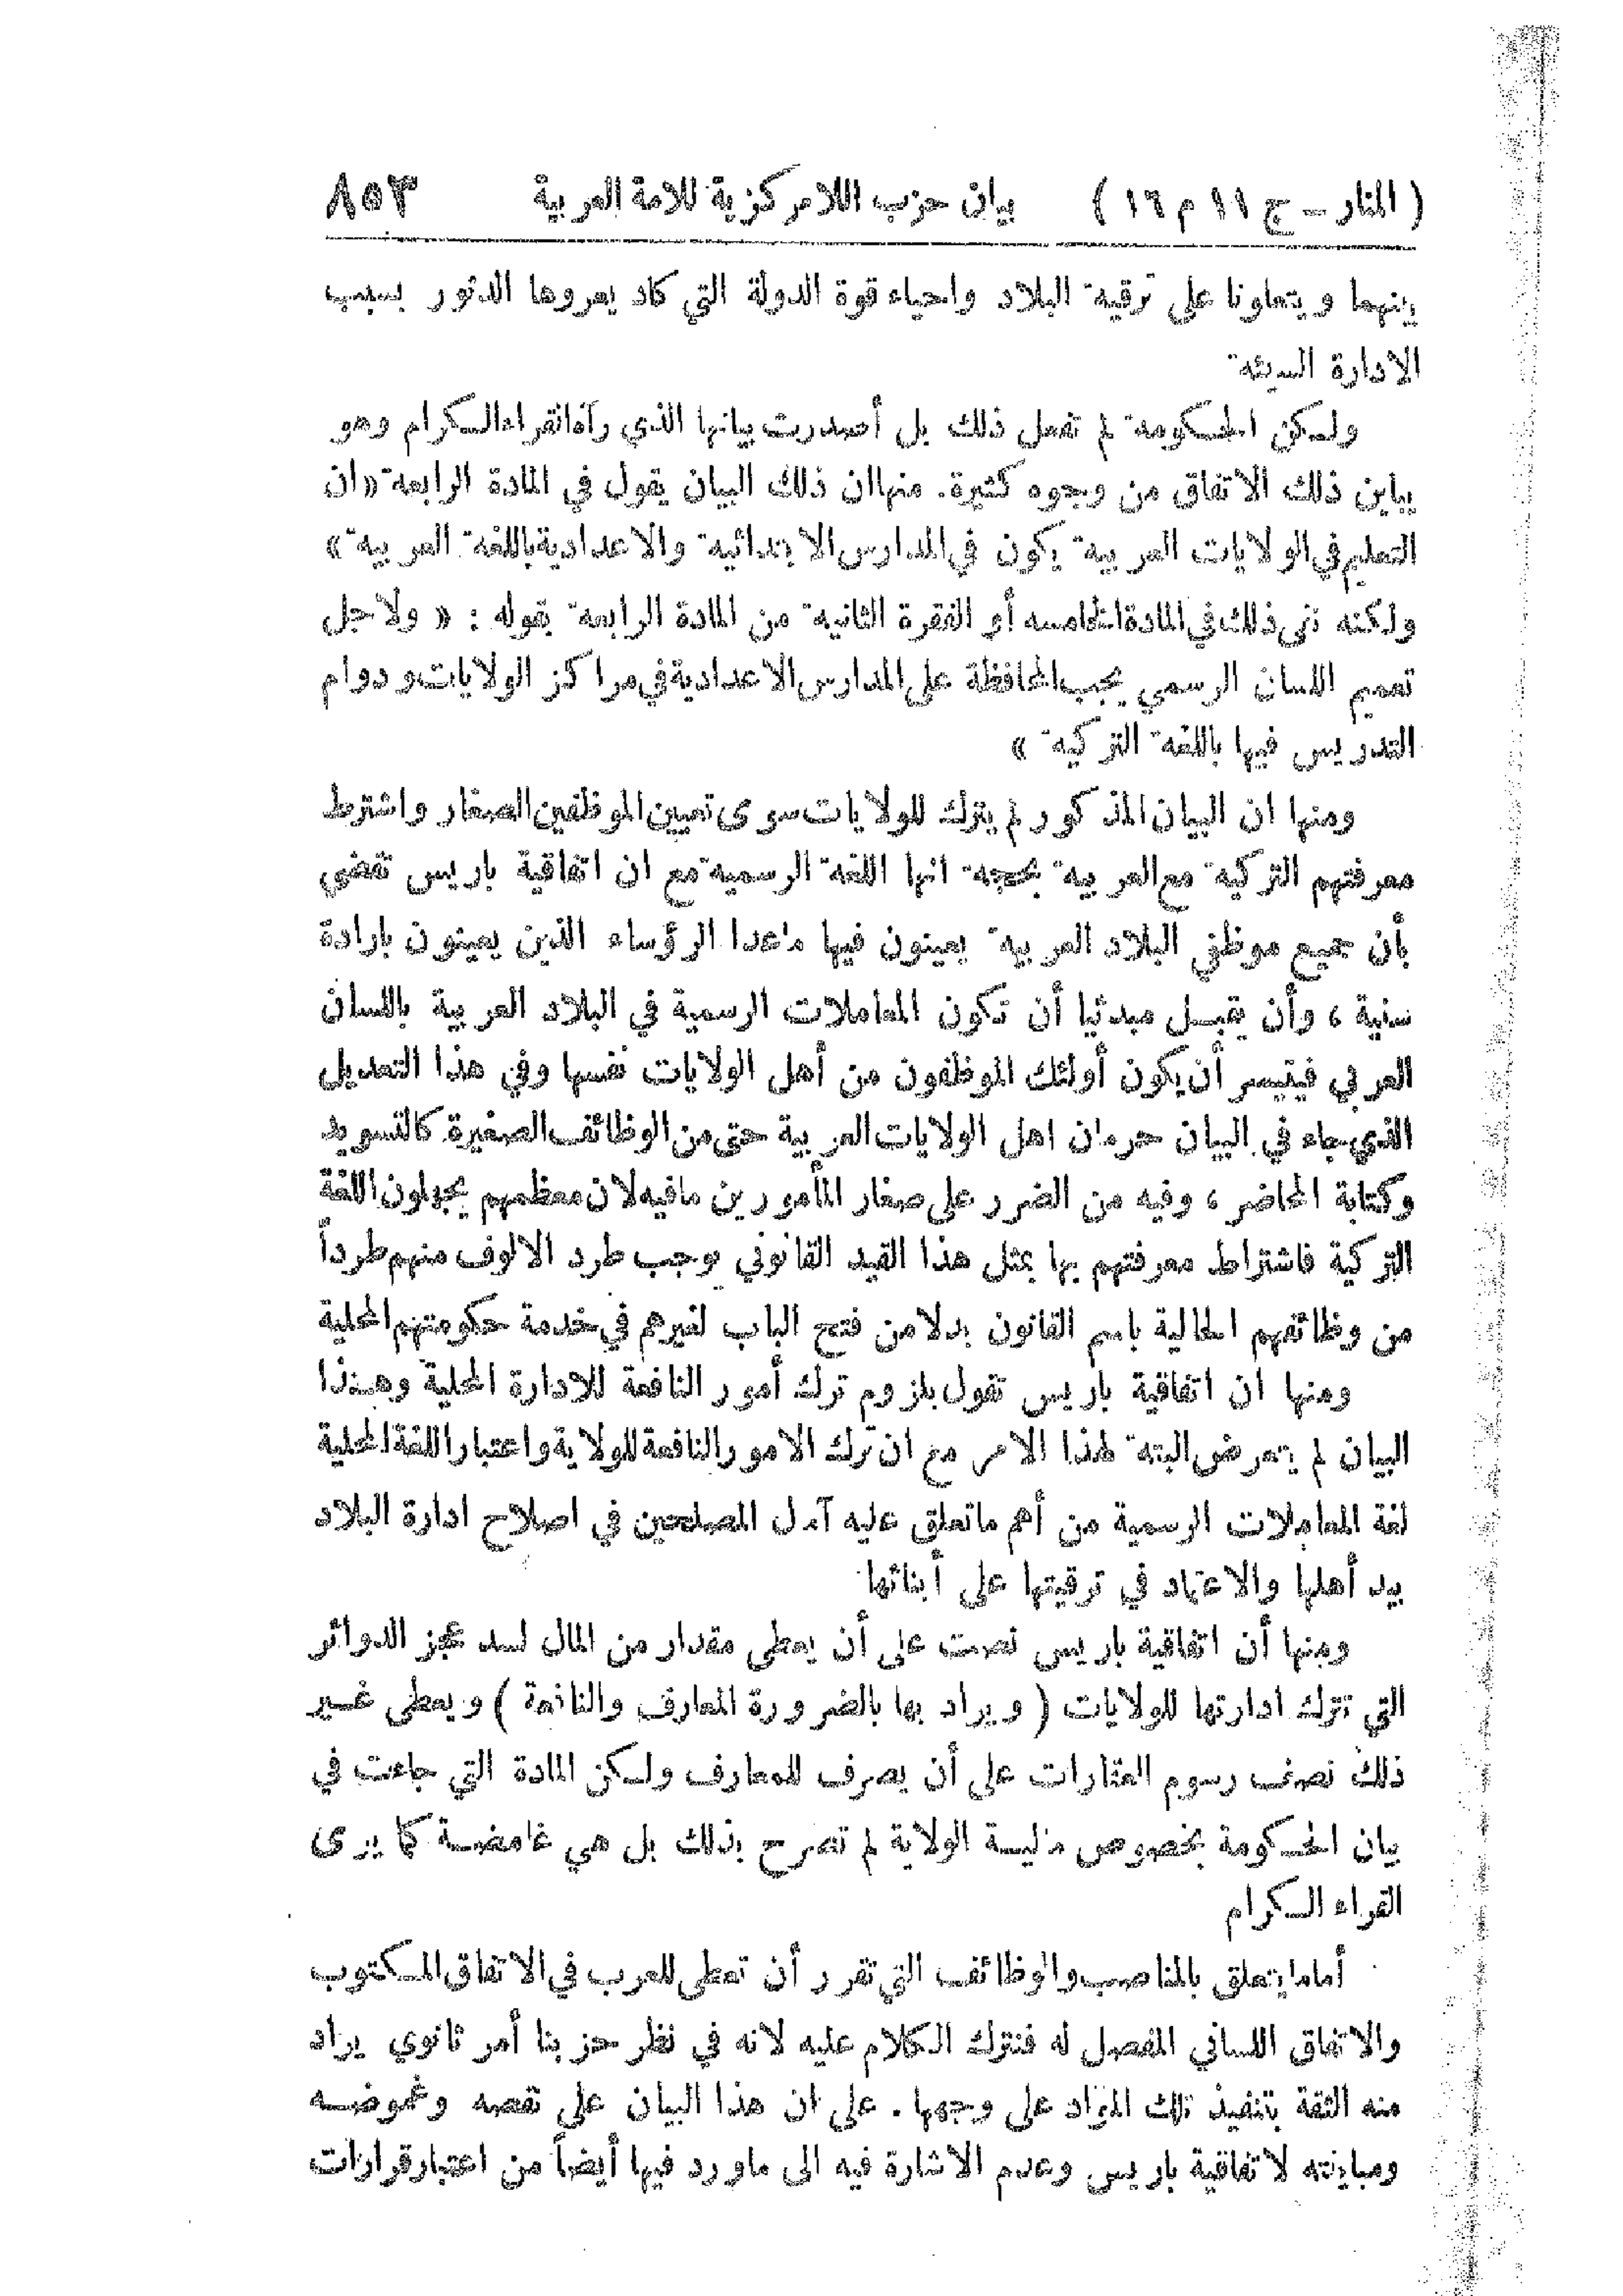 ( المنار ـ ج ١١ م ١٦ ) بيان حزب اللامركزية للامة العربية ٨٥٣
بينهما ويتعاونا على ترقية البلاد واحياء قوة الدولة التي كاد يعروها الدثور بسبب
الادارة السيئة
ولكن الحكومة لم تفعل ذلك بل أصدرت بيانها الذي رآه القراء الكرام وهو
يباين ذلك الاتفاق من وجوه كثيرة. منها ان ذلك البيان يقول في المادة الرابعة «ان
التعليم في الولايات العربية يكون في المدارس الابتدائية والاعدادية باللغة العربية»
ولكنه نفى ذلك في المادة الخامسه أو الفقرة الثانية من المادة الرابعة بقوله : « ولاجل
تعميم اللسان الرسمي يجب المحافظة على المدارس الاعدادية في مراكز الولايات ودوام
التدريس فيها باللغة التركية »
ومنها ان البيان المذكور لم يترك للولايات سوى تعيين الموظفين الصغار واشترط
معرفتهم التركية مع العربية بحجة انها اللغة الرسمية مع ان اتفاقية باريس تقضي
بأن جميع موظفي البلاد العربية يعينون فيها ماعدا الرؤساء الذين يعينون بارادة
سنية ، وأن يقبل مبدئيا أن تكون المعاملات الرسمية في البلاد العربية باللسان
العربي فيتيسر أن يكون أولئك الموظفون من أهل الولايات نفسها وفي هذا التعديل
الذي جاء في البيان حرمان اهل الولايات العربية حتى من الوظائف الصغيرة كالتسويد
وكتابة المحاضر ، وفيه من الضرر على صغار المأمورين مافيه لان معظمهم يجهلون اللغة
التركية فاشتراط معرفتهم بها بمثل هذا القيد القانوني يوجب طرد الالوف منهم طرداً
من وظائفهم الحالية باسم القانون بدلا من فتح الباب لغيرهم في خدمة حكومتهم المحلية
ومنها ان اتفاقية باريس تقول بلزوم ترك أمور النافعة للادارة المحلية وهذا
البيان لم يتعرض البتة لهذا الامر مع ان ترك الامور النافعة للولاية واعتبار اللغة المحلية
لغة المعاملات الرسمية من أهم ماتعلق عليه آمال المصلحين في اصلاح ادارة البلاد
بيد أهلها والاعتماد في ترقيتها على أبنائها
ومنها أن اتفاقية باريس نصت على أن يعطى مقدار من المال لسد عجز الدوائر
التي تترك ادارتها للولايات ( ويراد بها بالضرورة المعارف والنافعة ) ويعطى غير
ذلك نصف رسوم العقارات على أن يصرف للمعارف ولكن المادة التي جاءت في
بيان الحكومة بخصوص مالية الولاية لم تصرح بذلك بل هي غامضة كما يرى
القراء الكرام
أما ما يتعلق بالمناصب والوظائف التي تقرر أن تعطى للعرب في الاتفاق المكتوب
والاتفاق اللساني المفصل له فنترك الكلام عليه لانه في نظر حزبنا أمر ثانوي يراد
منه الثقة بتنفيذ تلك المواد على وجهها . على ان هذا البيان على نقصه وغموضه
ومباينته لاتفاقية باريس وعدم الاشارة فيه الى ماورد فيها أيضاً من اعتبار قرارات